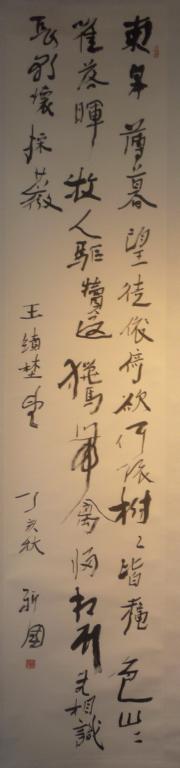 東皋薄暮望徙倚欲何依樹々皆穐色山々
唯落暉牧人驅犢返獵馬帶禽歸相顧無相識
長歌懷採薇
王績野望
丁亥秋 國